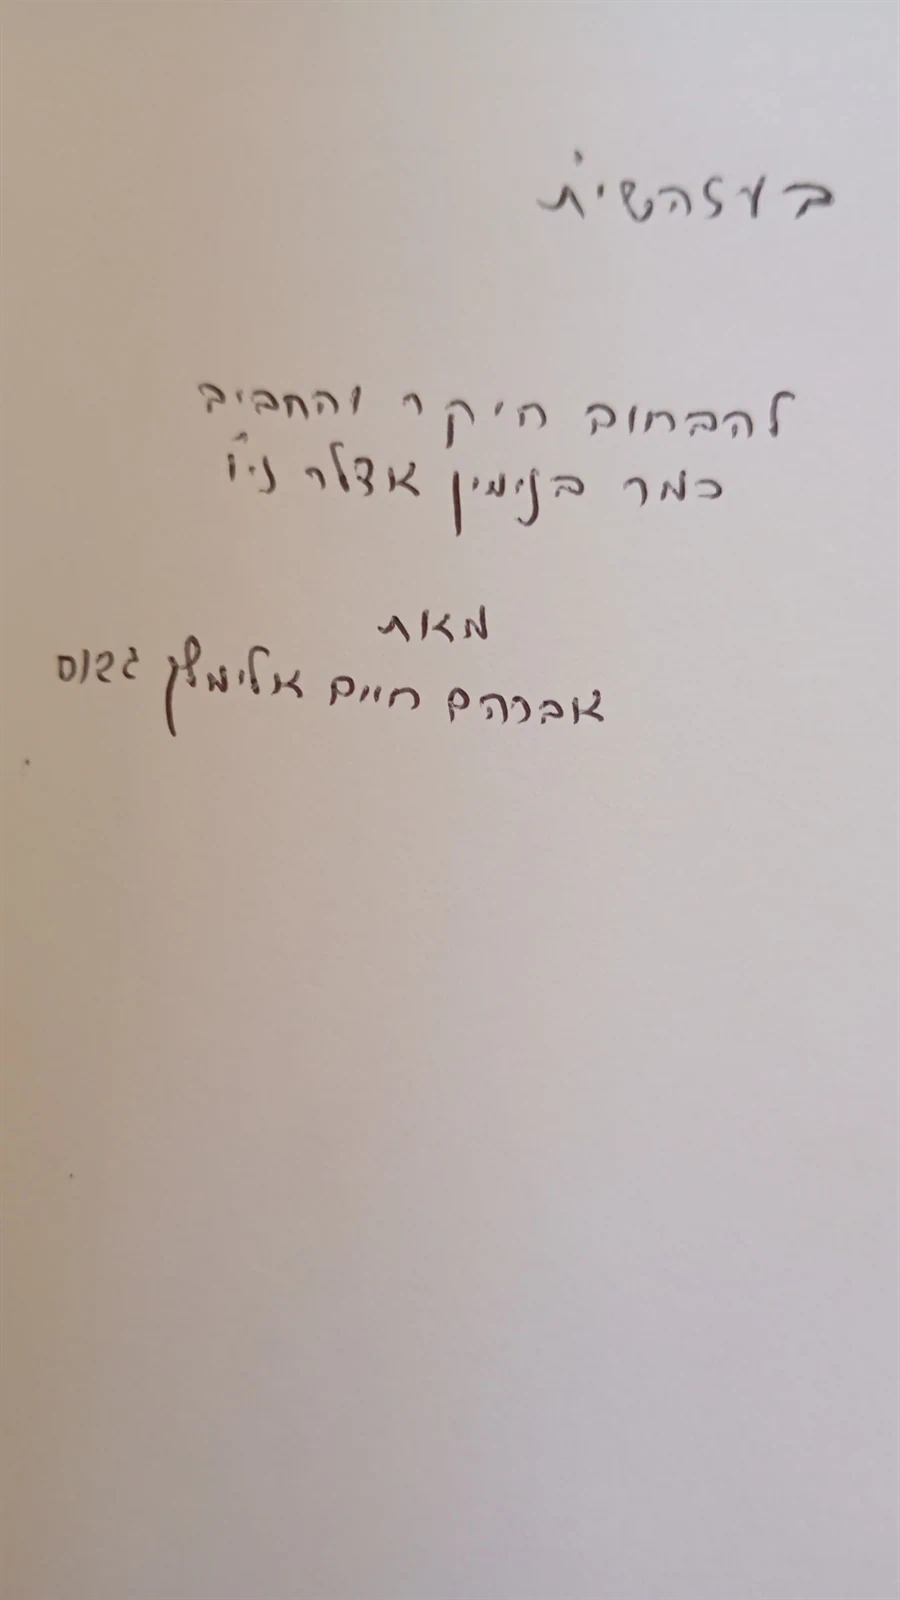 בעזהשי״ת
להבחור היקר והחביב
כמר בנימין אדלר ני״ו
מאת
אברהם חיים אלימלך